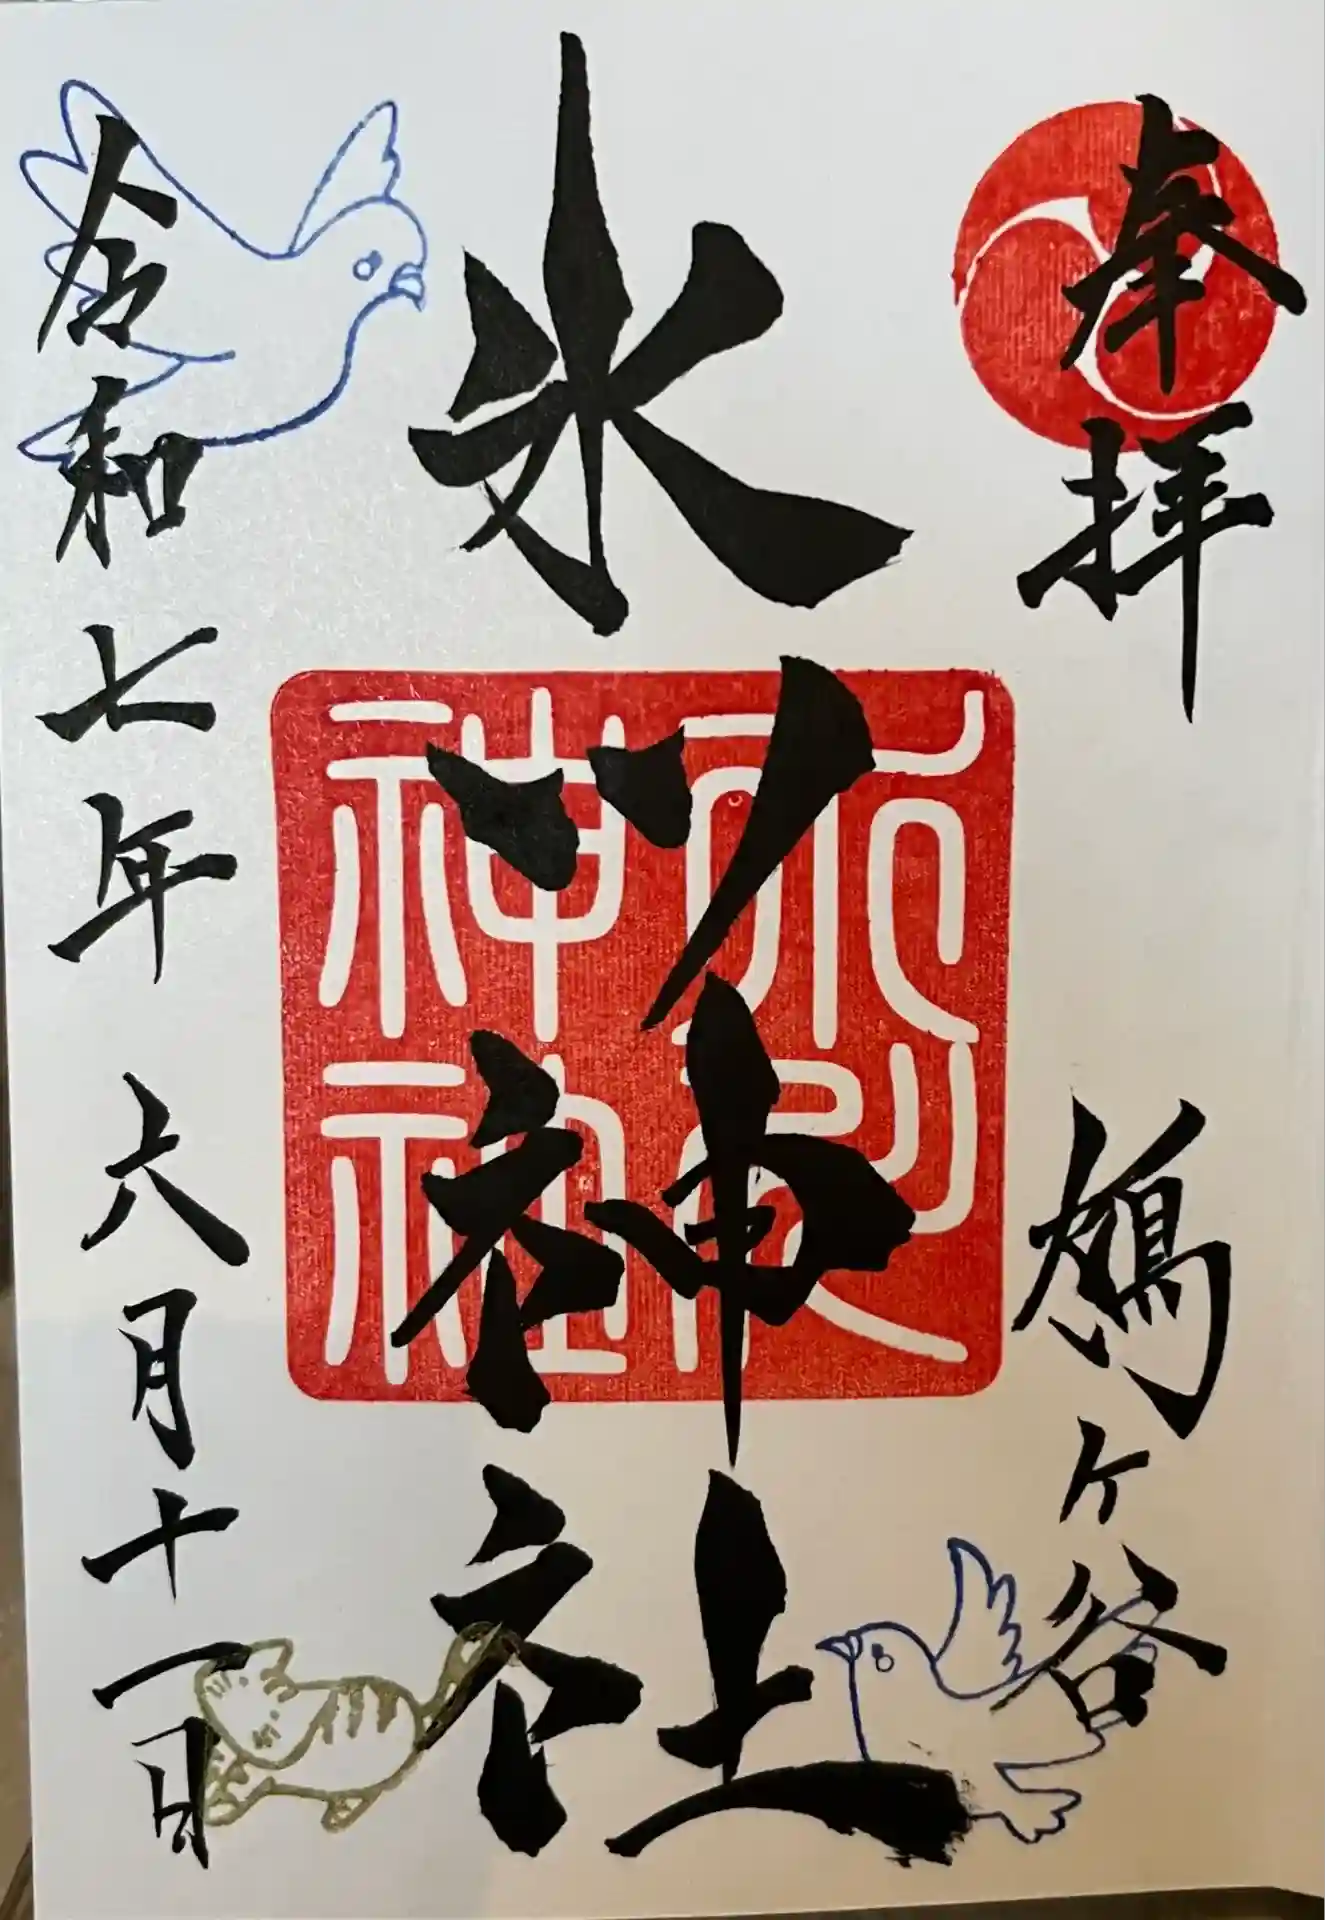 奉拝
鳩ヶ谷
氷川神社
氷川神社
令和七年六月十一日